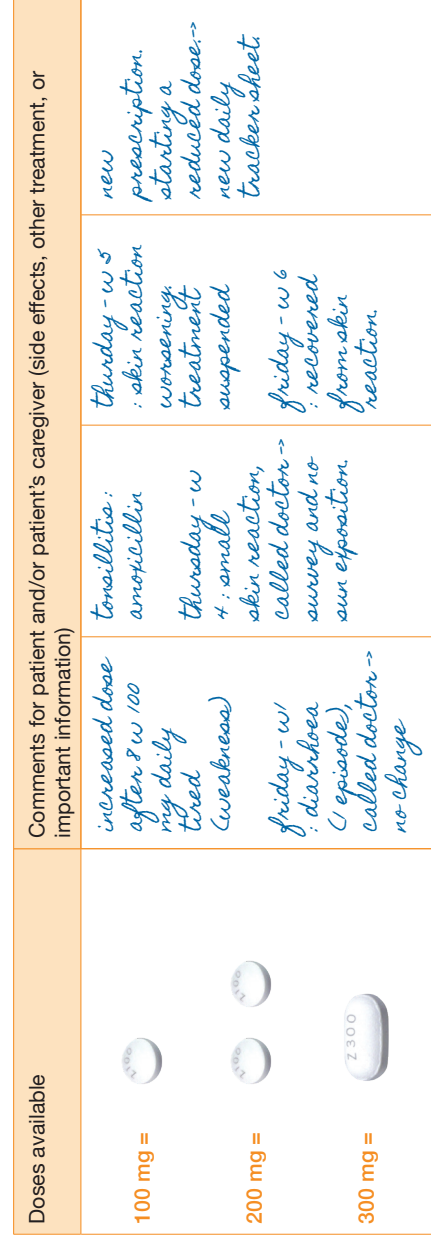 Doses available
Comments for patient and/or patient's caregiver (side effects, other treatment, or
important information)
100 mg =
Z100
200 mg =
Z100
Z100
300 mg =
Z 300
increased dose
after 8 w 100
mg daily
tired
(weakness)
friday - w1
: diarrhoea
(1 episode),
called doctor ->
no change
tonsillitis:
amoxicillin
thursday - w
4 : small
skin reaction,
called doctor ->
survey and no
sun exposition.
thursday - w 5
: skin reaction
worsening.
treatment
suspended
friday - w 6
: recovered
from skin
reaction.
new
prescription.
starting a
reduced dose.->
new daily
tracker sheet.